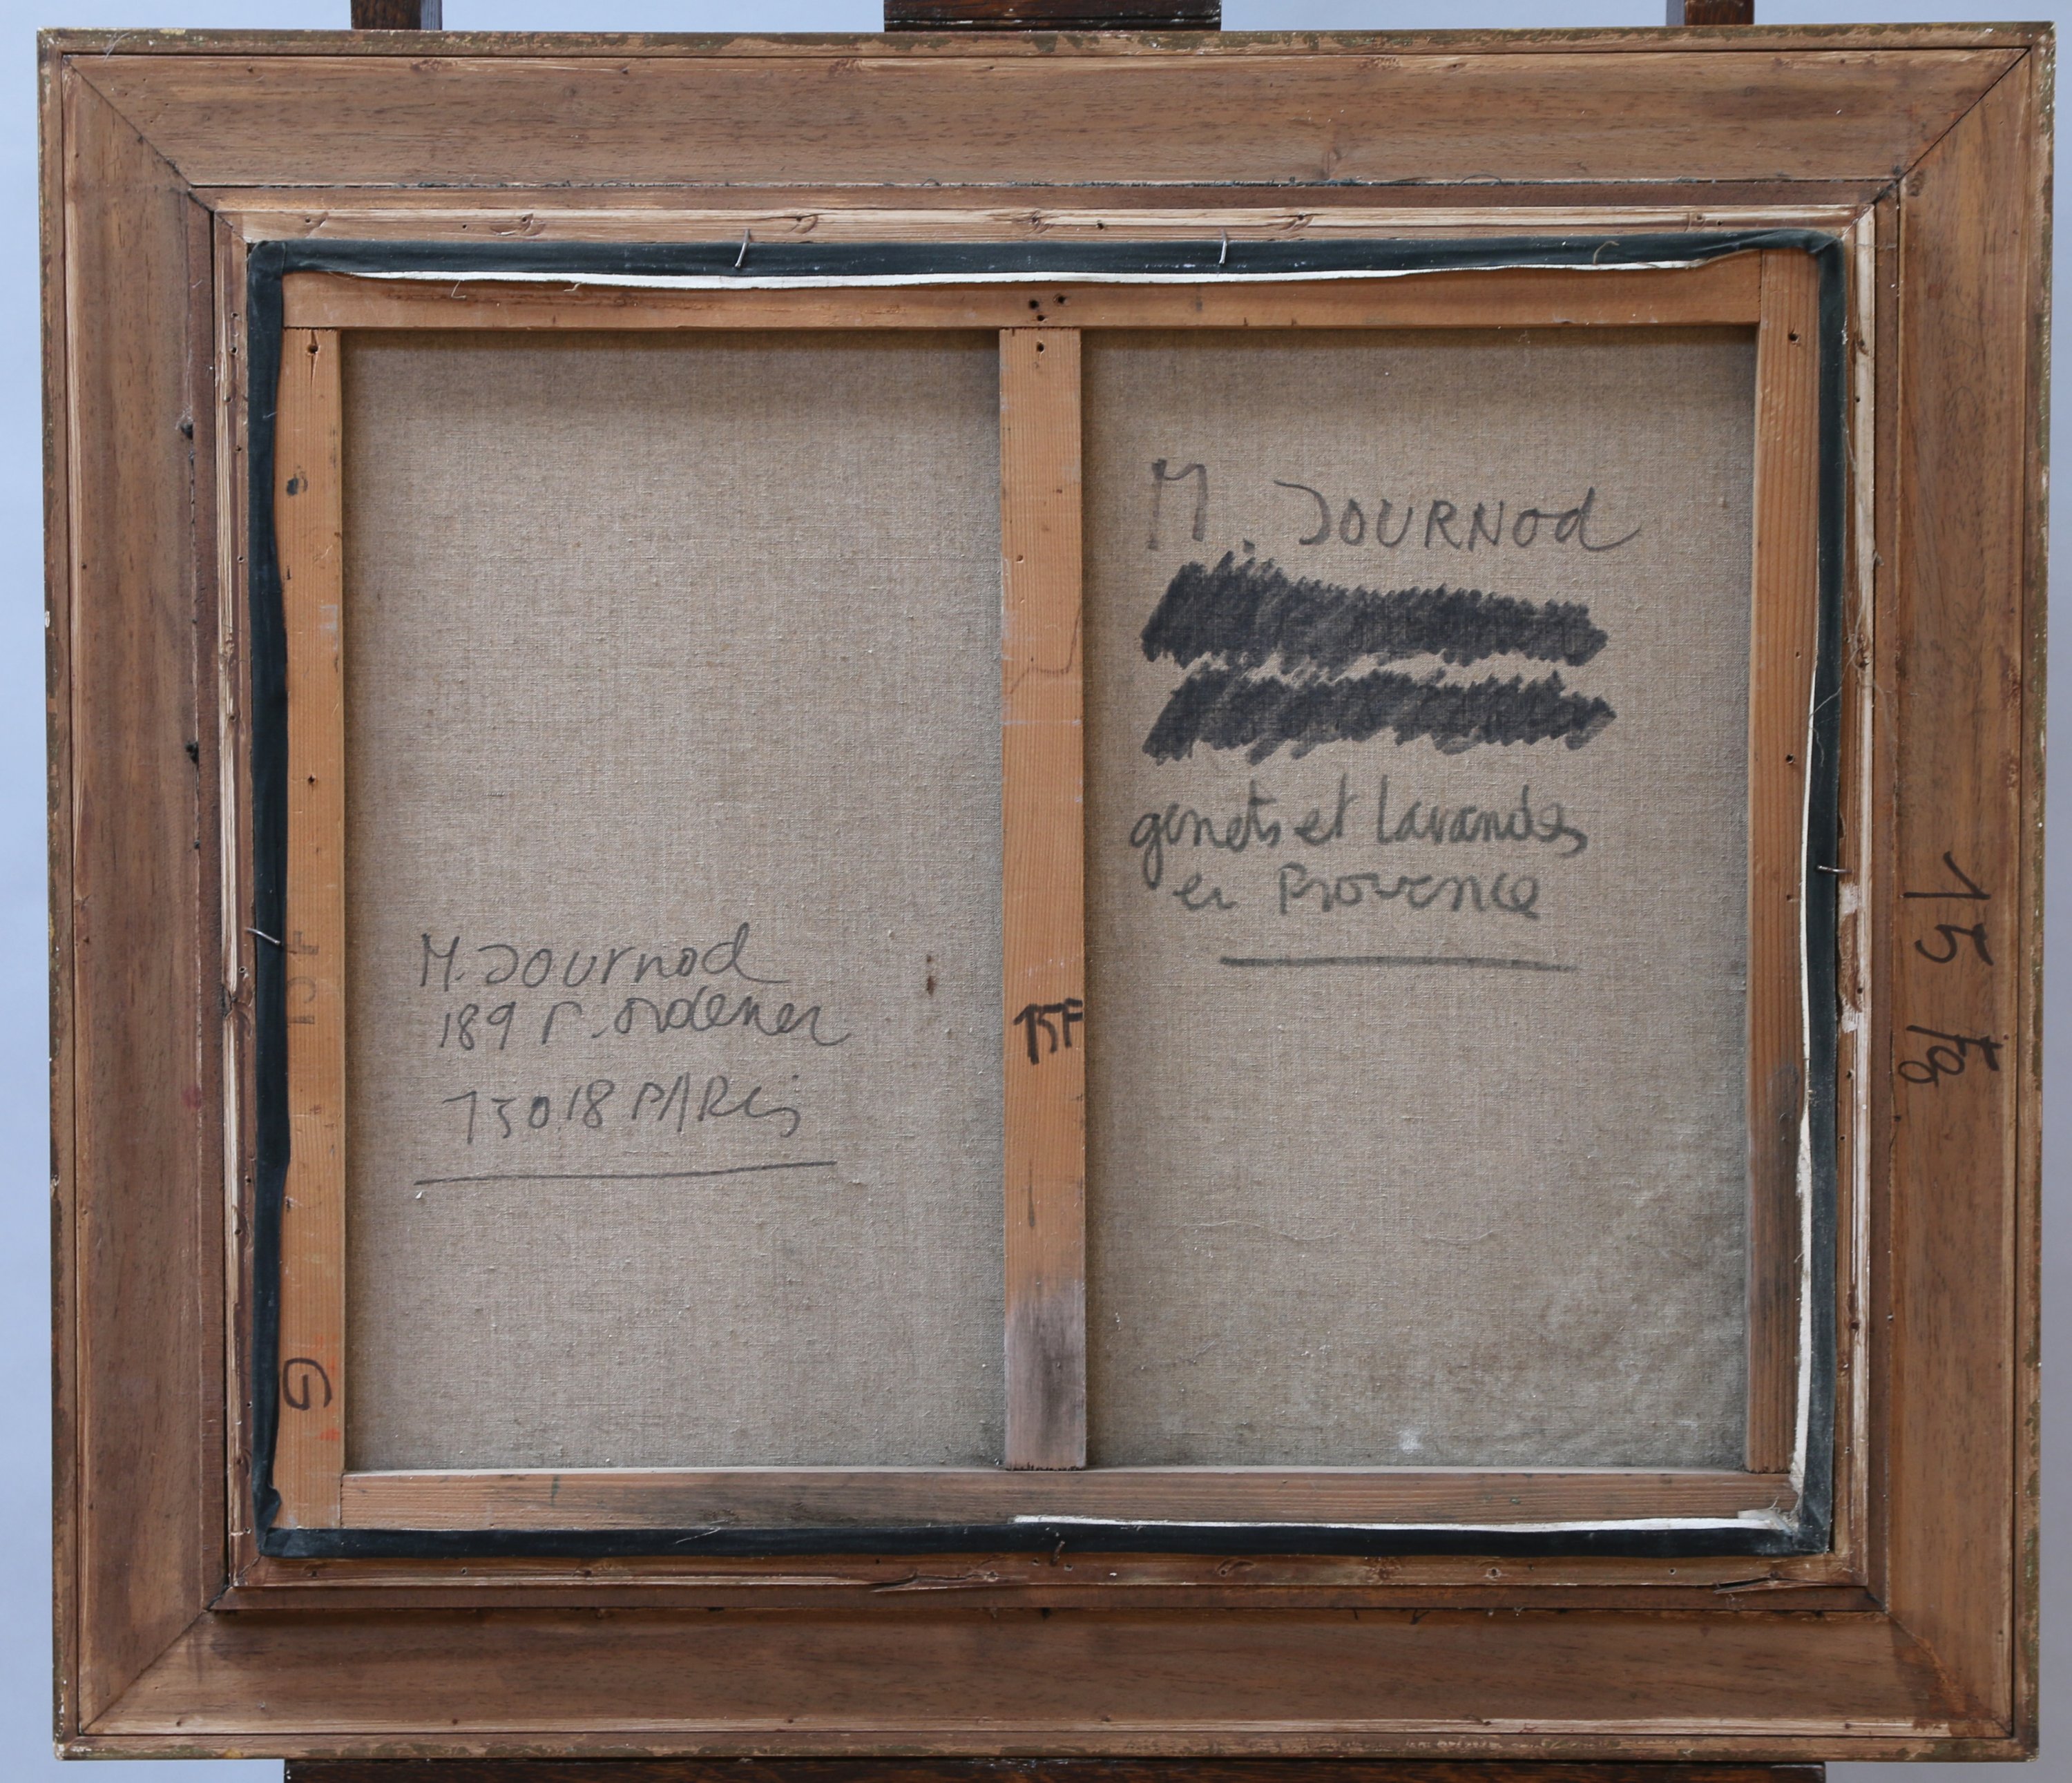 M. JOURNOd
genets et lavandes
en Provence
M. Journod
189 r. ordener
75018 PARis
15F
15 F
15F
G